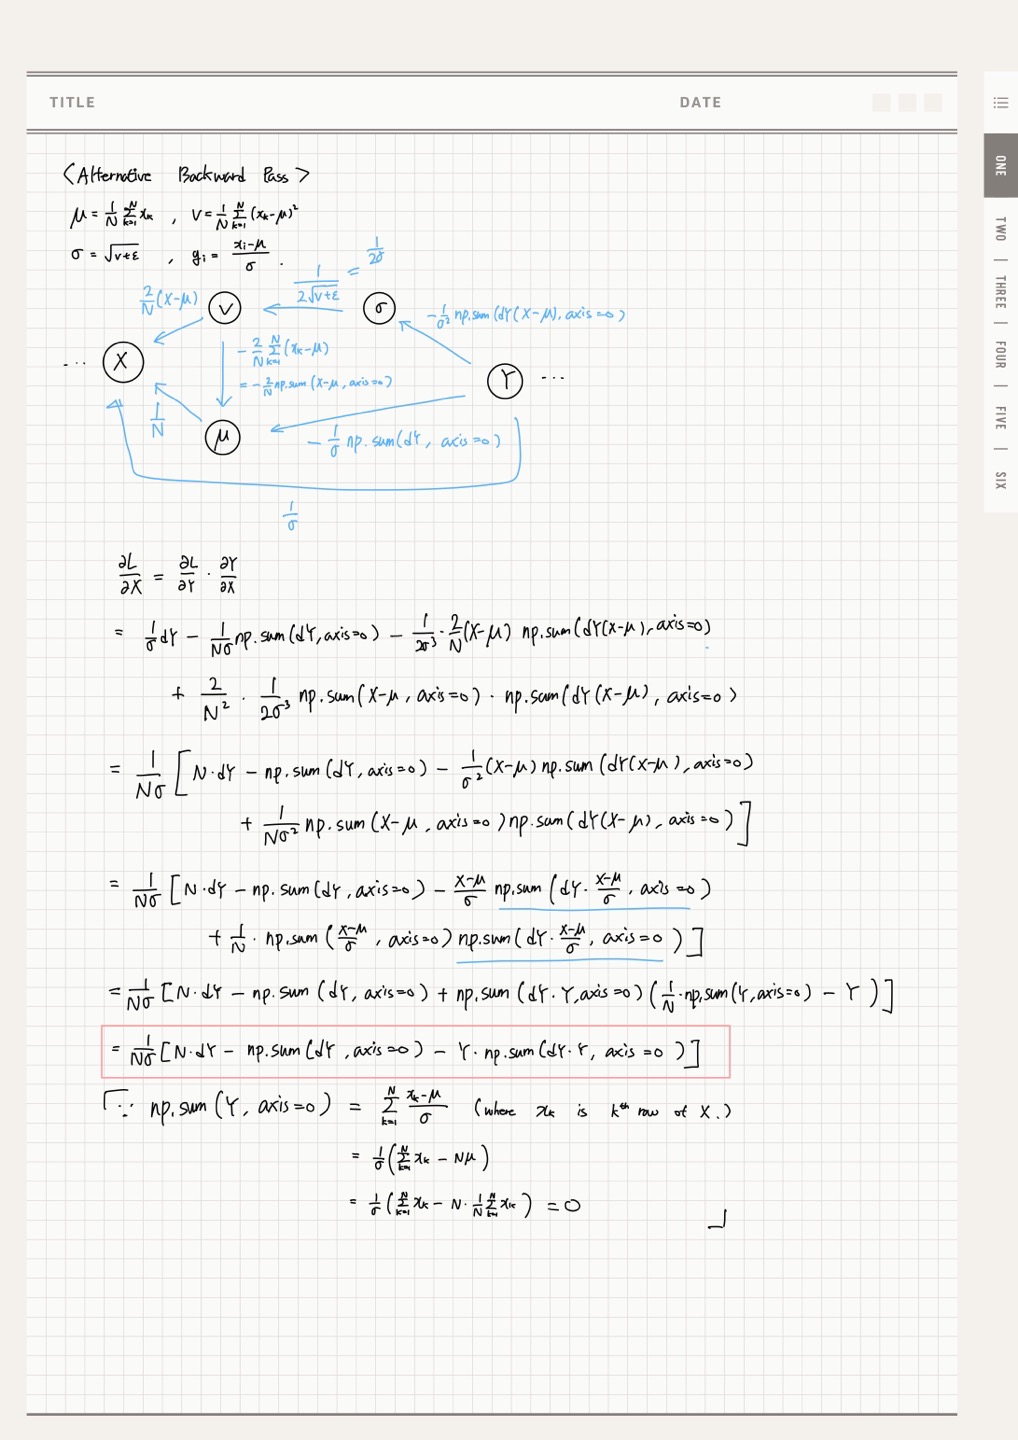 TITLE DATE
<Alternative Backward Pass>
μ = 1/N Σ_{k=1}^{N} x_k , v = 1/N Σ_{k=1}^{N} (x_k-μ)²
σ = √(v+ε) , y_i = (x_i-μ)/σ .
1/(2√(v+ε)) = 1/2σ
2/N (X-μ) v σ -1/σ² np.sum(dY(X-μ), axis=0)
- 2/N Σ_{k=1}^{N} (x_k-μ)
··· X
= - 2/N np.sum(X-μ, axis=0) Y ···
1/N μ - 1/σ np.sum(dY, axis=0)
1/σ
∂L/∂X = ∂L/∂Y · ∂Y/∂X
= 1/σ dY - 1/Nσ np.sum(dY, axis=0) - 1/2σ³ · 2/N (X-μ) np.sum(dY(X-μ), axis=0)
+ 2/N² · 1/2σ³ np.sum(X-μ, axis=0) · np.sum(dY(X-μ), axis=0)
= 1/Nσ [ N·dY - np.sum(dY, axis=0) - 1/σ² (X-μ) np.sum(dY(X-μ), axis=0)
+ 1/Nσ² np.sum(X-μ, axis=0) np.sum(dY(X-μ), axis=0) ]
= 1/Nσ [ N·dY - np.sum(dY, axis=0) - (X-μ)/σ np.sum(dY·(X-μ)/σ, axis=0)
+ 1/N · np.sum((X-μ)/σ, axis=0) np.sum(dY·(X-μ)/σ, axis=0) ]
= 1/Nσ [N·dY - np.sum(dY, axis=0) + np.sum(dY·Y, axis=0) (1/N·np.sum(Y, axis=0) - Y )]
= 1/Nσ [N·dY - np.sum(dY, axis=0) - Y·np.sum(dY·Y, axis=0)]
∵ np.sum(Y, axis=0) = Σ_{k=1}^{N} (x_k-μ)/σ (where x_k is kth row of X.)
= 1/σ (Σ_{k=1}^{N} x_k - Nμ)
= 1/σ (Σ_{k=1}^{N} x_k - N·1/N Σ_{k=1}^{N} x_k) = 0
ONE
TWO
THREE
FOUR
FIVE
SIX